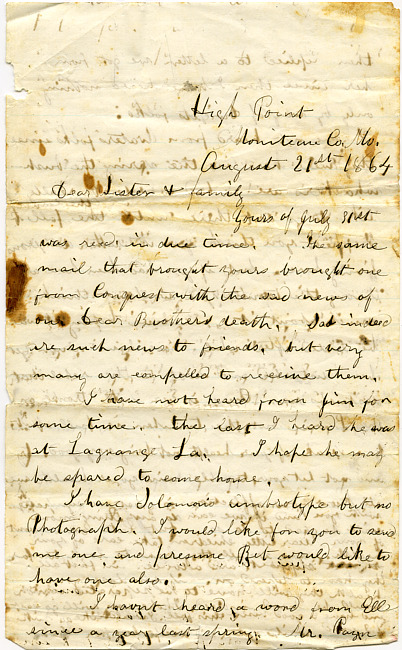 High Point
Moniteau Co. Mo.
August 21st 1864
Dear Sister & family
Yours of July 31st
was recd. in due time. The same
mail that brought yours brought one
from Conquest with the sad news of
our Dear Brothers death. Sad indeed
are such news to friends. but very
many are compelled to receive them.
I have not heard from Jim for
some time. the last I heard he was
at Lagrange La. I hope he may
be spared to come home.
I have Solomons ambrotype but no
Photograph. I would like for you to send
me one and presume Bet would like to
have one also.
I havnt heard a word from Ell
since a year last spring. Mr. Payn